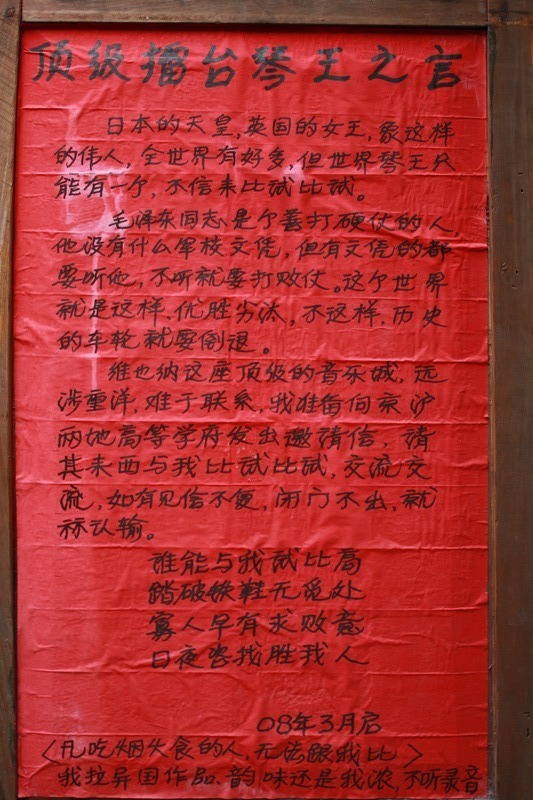 顶级擂台琴王之言
日本的天皇,英国的女王,象这样
的伟人,全世界有好多,但世界琴王只
能有一个,不信来比试比试。
毛泽东同志是个善打硬仗的人,
他没有什么军校文凭,但有文凭的都
要听他,不听就要打败仗。这个世界
就是这样,优胜劣汰,不这样,历史
的车轮就要倒退。
维也纳这座顶级的音乐城,远
涉重洋,难于联系,我准备向京沪
两地高等学府发出邀请信,请
其来西与我比试比试,交流交
流,如有见信不复,闭门不出,就
标认输。
谁能与我试比高
踏破铁鞋无觅处
寡人早有求败意
日夜咨找胜我人
08年3月启
〈凡吃烟火食的人,无法跟我比〉
我拉异国作品、韵味还是我浓,不听录音